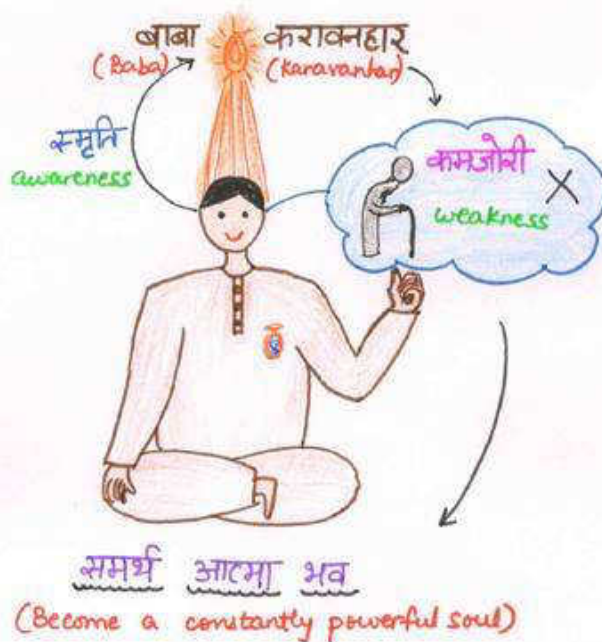 बाबा करावनहार
(Baba) (Karavanhar)
स्मृति
awareness
कमजोरी
weakness
समर्थ आत्मा भव
(Become a constantly powerful soul)